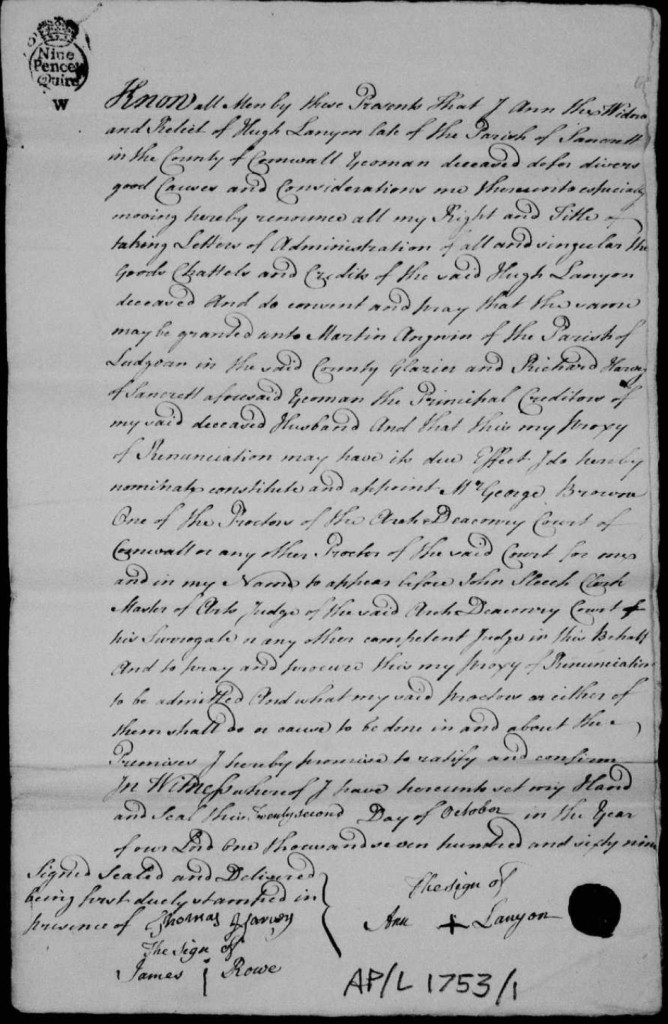 Nine
Pence pr
Quire
W
Know all Men by these Presents That I Ann the Widow
and Relict of Hugh Lanyon late of the Parish of Sancrett
in the County of Cornwall Yeoman deceased do for divers
good Causes and Considerations me thereunto especially
moving hereby renounce all my Right and Title of
taking Letters of Administration of all and singular the
Goods Chattels and Credits of the said Hugh Lanyon
deceased And do consent and pray that the same
may be granted unto Martin Angwin of the Parish of
Ludgvan in the said County Glazier and Richard Harvey
of Sancrett aforesaid Yeoman the Principal Creditors of
my said deceased Husband And that this my Proxy
of Renunciation may have its due Effect I do hereby
nominate constitute and appoint Mr. George Browne
One of the Proctors of the Arch Deaconry Court of
Cornwall or any other Proctor of the said Court for me
and in my Name to appear before John Sleech Clerk
Master of Arts Judge of the said Arch Deaconry Court
his Surrogate or any other competent Judge in this Behalf
And to pray and procure this my Proxy of Renunciation
to be admitted And what my said Proctors or either of
them shall do or cause to be done in and about the
Premises I hereby promise to ratify and confirm
In Witness whereof I have hereunto set my Hand
and Seal this Twenty second Day of October in the Year
of our Lord One thousand seven hundred and sixty nine
Signed Sealed and Delivered
being first duely stamped in
presence of Thomas Harvey
The sign of
James Rowe
The sign of
Ann + Lanyon
AP/L 1753/1